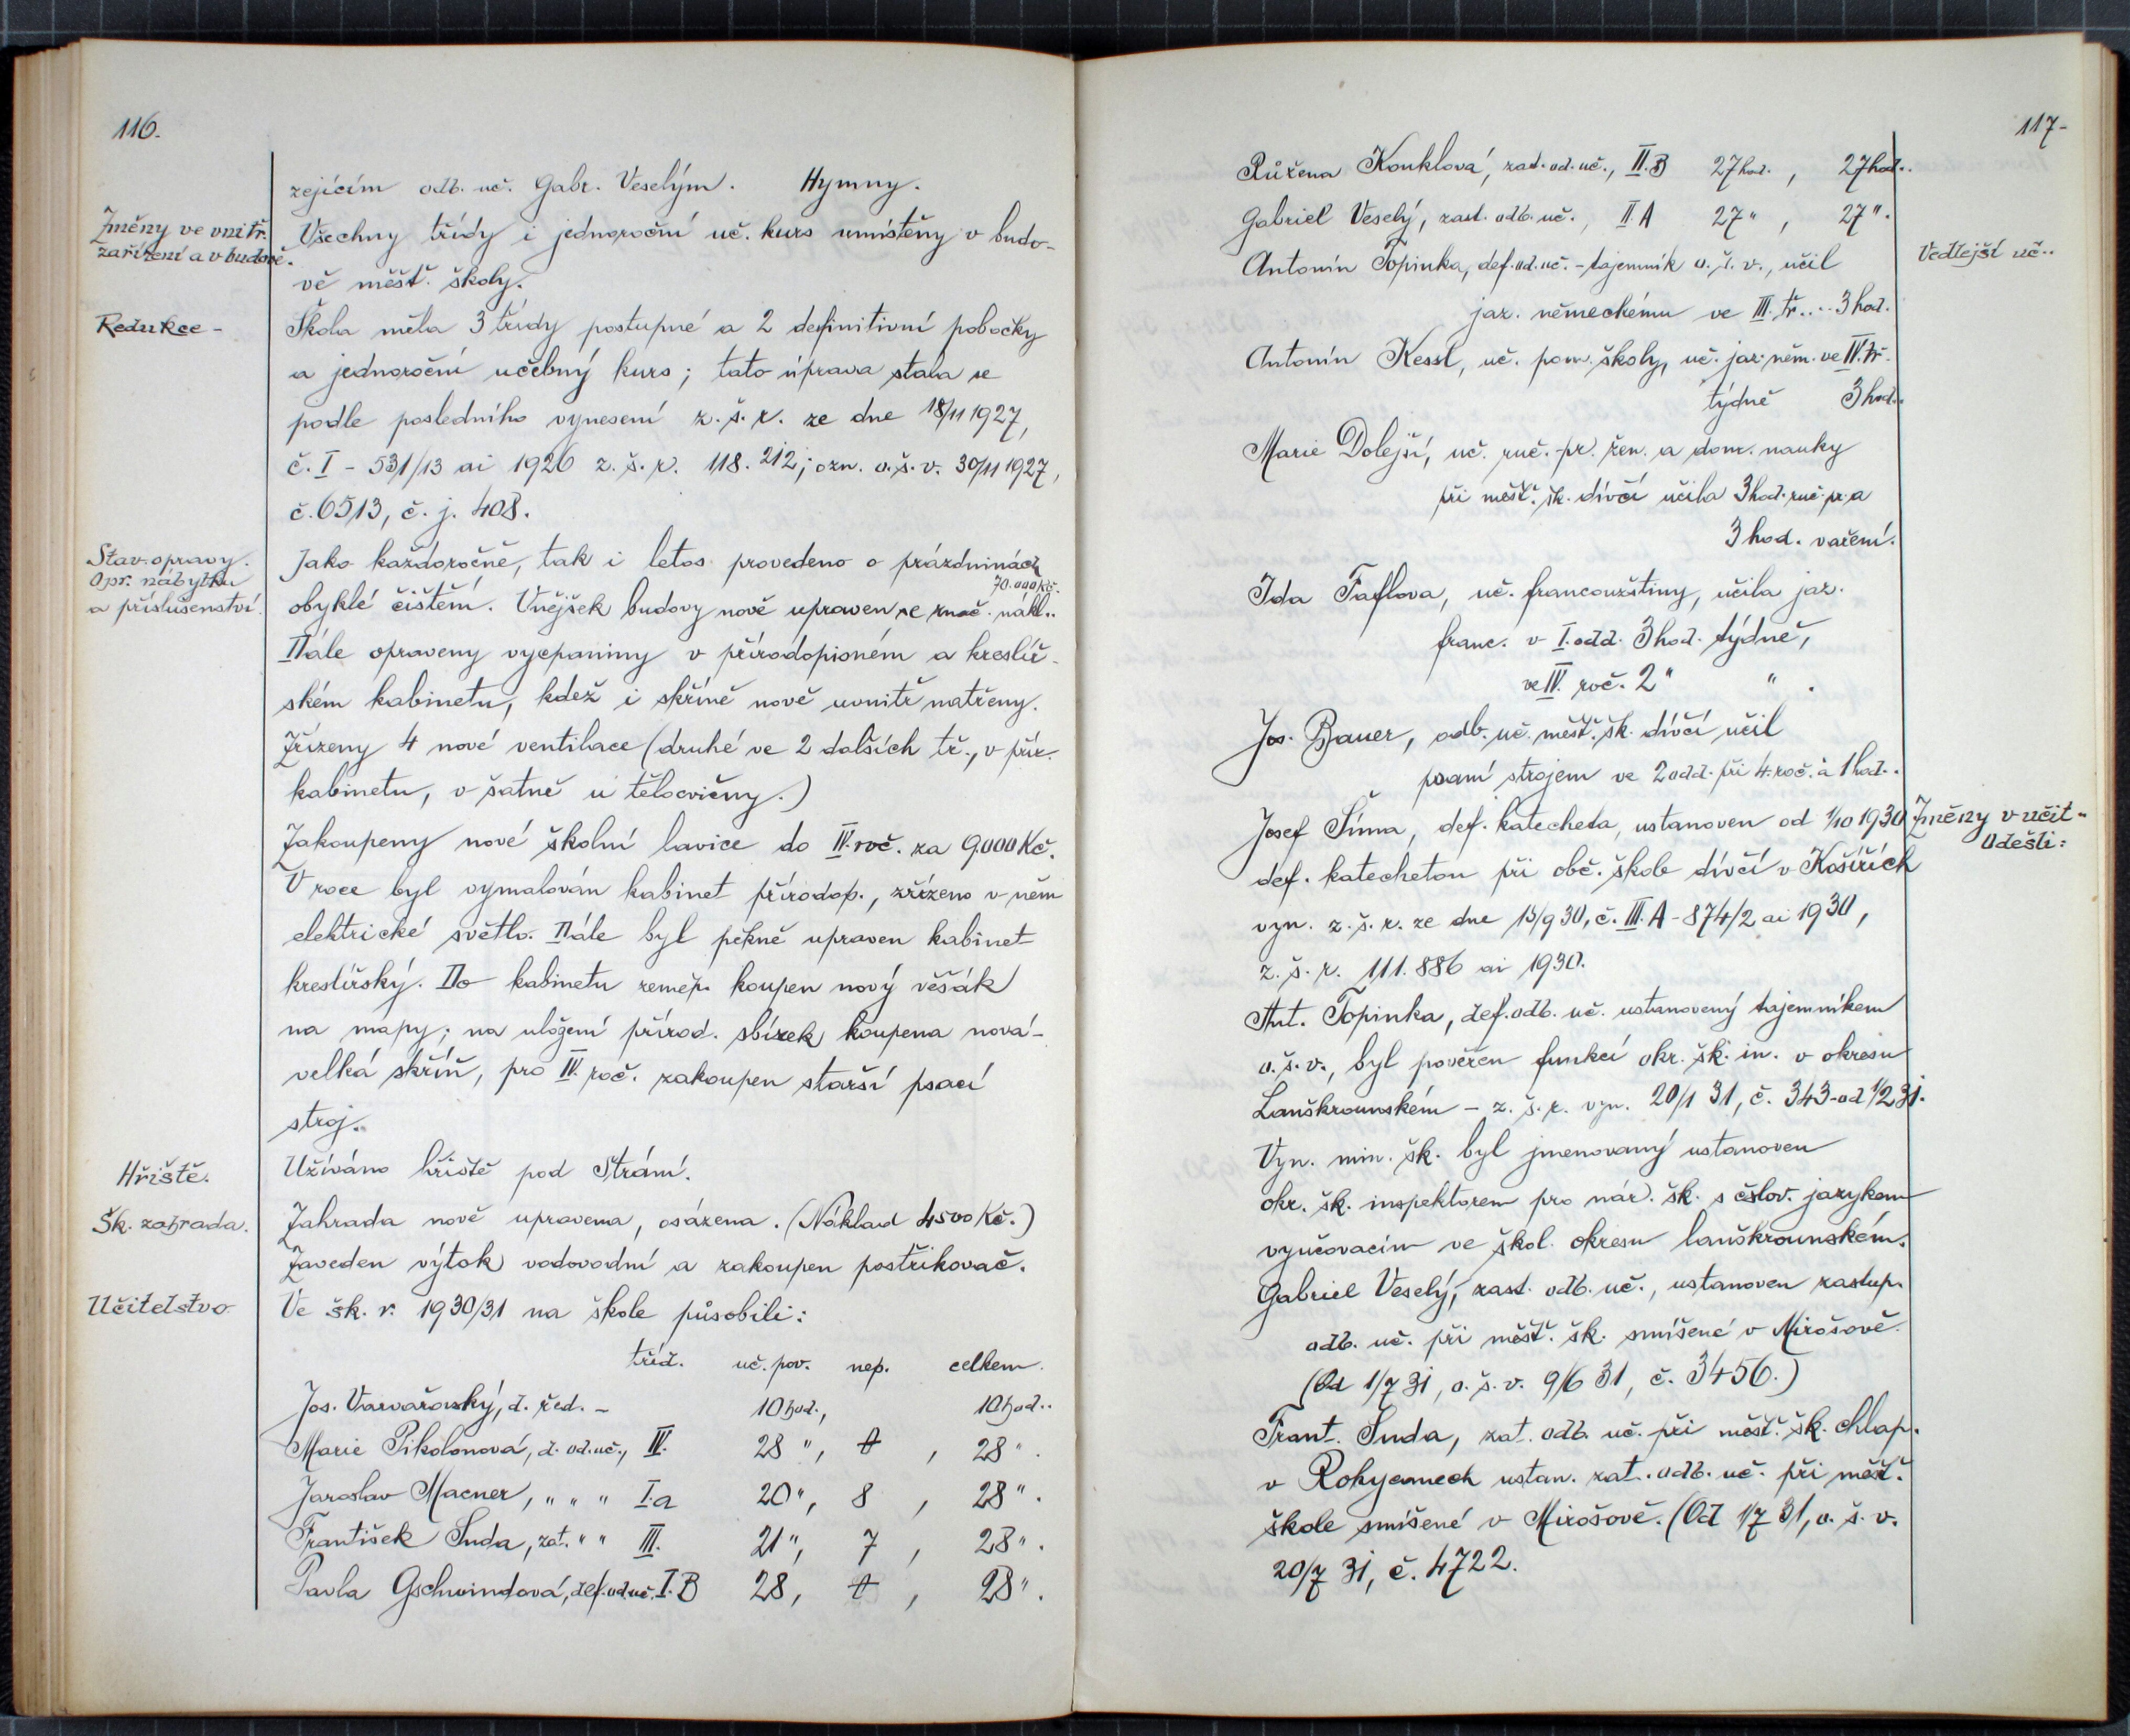 116.
zejícím odb. uč. Gabr. Veselým. Hymny.
Změny ve vnitř.
zařízení a v budově.
Všechny třídy i jednoroční uč. kurs umístěny v budo-
vě měšť. školy.
Redukce -
Škola měla 3 třídy postupné a 2 definitivní pobočky
a jednoroční učebný kurs; tato úprava stala se
podle posledního vynesení z. š. r. ze dne 18/11 1927,
č. I - 531/13 ai 1926 z. š. r. 118.212; ozn. o. š. v. 30/11 1927,
č. 6513, č. j. 408.
Stav. opravy.
Opr. nábytku
a příslušenství.
Jako každoročně, tak i letos provedeno o prázdninách
70.000 Kč.
obyklé čištění. Vnějšek budovy nově upraven se znač. nákl..
Dále opraveny vycpaniny v přírodopisném a kreslíř-
ském kabinetu, kdež i skříně nově uvnitř natřeny.
Zřízeny 4 nové ventilace (druhé ve 2 dalších tř., v přír.
kabinetu, v šatně u tělocvičny.)
Zakoupeny nové školní lavice do IV. roč. za 9.000 Kč.
V roce byl vymalován kabinet přírodop., zřízeno v něm
elektrické světlo. Dále byl pěkně upraven kabinet
kreslířský. Do kabinetu zeměp. koupen nový věšák
na mapy; na uložení přírod. sbírek koupena nová
velká skříň, pro IV. roč. zakoupen starší psací
stroj.
Hřiště.
Užíváno hřiště pod Strání.
Šk. zahrada.
Zahrada nově upravena, osázena. (Náklad 4500 Kč.)
Zaveden výtok vodovodní a zakoupen postřikovač.
Učitelstvo
Ve šk. r. 1930/31 na škole působili:
tříd. uč. pov. nep. celkem.
Jos. Varvařovský, d. řed. - 10 hod., 10 hod..
Marie Pikolonová, d. od. uč., IV. 28 ", , 28 ".
Jaroslav Macner, " " " I.a 20 ", 8 , 28 ".
František Suda, zat. " " III. 21 ", 7 , 28 ".
Pavla Gschwindová, def. od. uč. I. B 28, , 28 ".
117-
Růžena Kouklová, zast. od. uč., II. B 27 hod. , 27 hod..
Gabriel Veselý, zast. odb. uč., II. A 27 " , 27 ".
Vedlejší uč..
Antonín Topinka, def. od. uč. - tajemník o. š. v., učil
jaz. německému ve III. tř.... 3 hod.
Antonín Kessl, uč. pom. školy, uč. jaz. něm. ve IV. tř.
týdně 3 hod..
Marie Dolejší, uč. ruč. pr. žen. a dom. nauky
při měšť. šk. dívčí učila 3 hod. ruč. pr. a
3 hod. vaření.
Ida Faflova, uč. francouzštiny, učila jaz.
franc. v I. odd. 3 hod. týdně,
ve IV. roč. 2 " " .
Jos. Bauer, odb. uč. měšť. šk. dívčí učil
psaní strojem ve 2 odd. při 4. roč. à 1 hod..
Změny v učit.
Odešli:
Josef Šíma, def. katecheta, ustanoven od 1/10 1930
def. katechetou při obč. škole dívčí v Košířích
vyn. z. š. r. ze dne 15/9 30, č. III. A - 874/2 ai 1930,
z. š. r. 111.886 ai 1930.
Ant. Topinka, def. odb. uč. ustanovený tajemníkem
o. š. v., byl pověřen funkcí okr. šk. in. v okresu
Lanškrounském - z. š. r. vyn. 20/1 31, č. 343 - od 1/2 31.
Vyn. min. šk. byl jmenovaný ustanoven
okr. šk. inspektorem pro nár. šk. s čslov. jazykem
vyučovacím ve škol. okresu lanškrounském.
Gabriel Veselý, zast. odb. uč., ustanoven zastup.
odb. uč. při měšť. šk. smíšené v Mirošově.
(Od 1/7 31, o. š. v. 9/6 31, č. 3456.)
Frant. Suda, zat. odb. uč. při měšť. šk. chlap.
v Rokycanech ustan. zat. odb. uč. při měšť.
škole smíšené v Mirošově. (Od 1/7 31, o. š. v.
20/7 31, č. 4722.